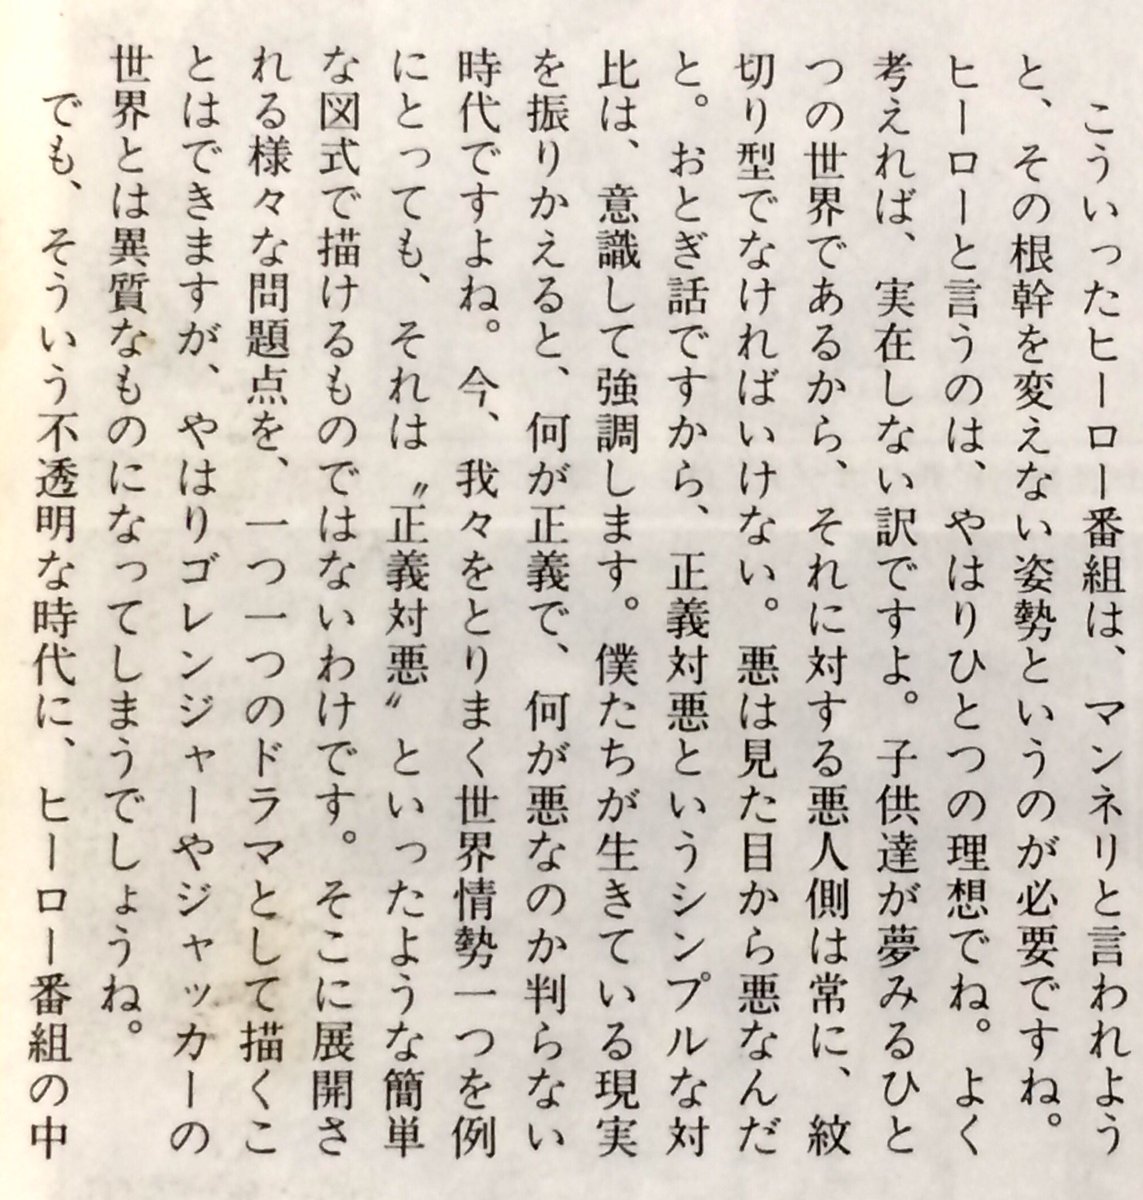 こういったヒーロー番組は、マンネリと言われよう
と、その根幹を変えない姿勢というのが必要ですね。
ヒーローと言うのは、やはりひとつの理想でね。よく
考えれば、実在しない訳ですよ。子供達が夢みるひと
つの世界であるから、それに対する悪人側は常に、紋
切り型でなければいけない。悪は見た目から悪なんだ
と。おとぎ話ですから、正義対悪というシンプルな対
比は、意識して強調します。僕たちが生きている現実
を振りかえると、何が正義で、何が悪なのか判らない
時代ですよね。今、我々をとりまく世界情勢一つを例
にとっても、それは〝正義対悪〟といったような簡単
な図式で描けるものではないわけです。そこに展開さ
れる様々な問題点を、一つ一つのドラマとして描くこ
とはできますが、やはりゴレンジャーやジャッカーの
世界とは異質なものになってしまうでしょうね。
でも、そういう不透明な時代に、ヒーロー番組の中